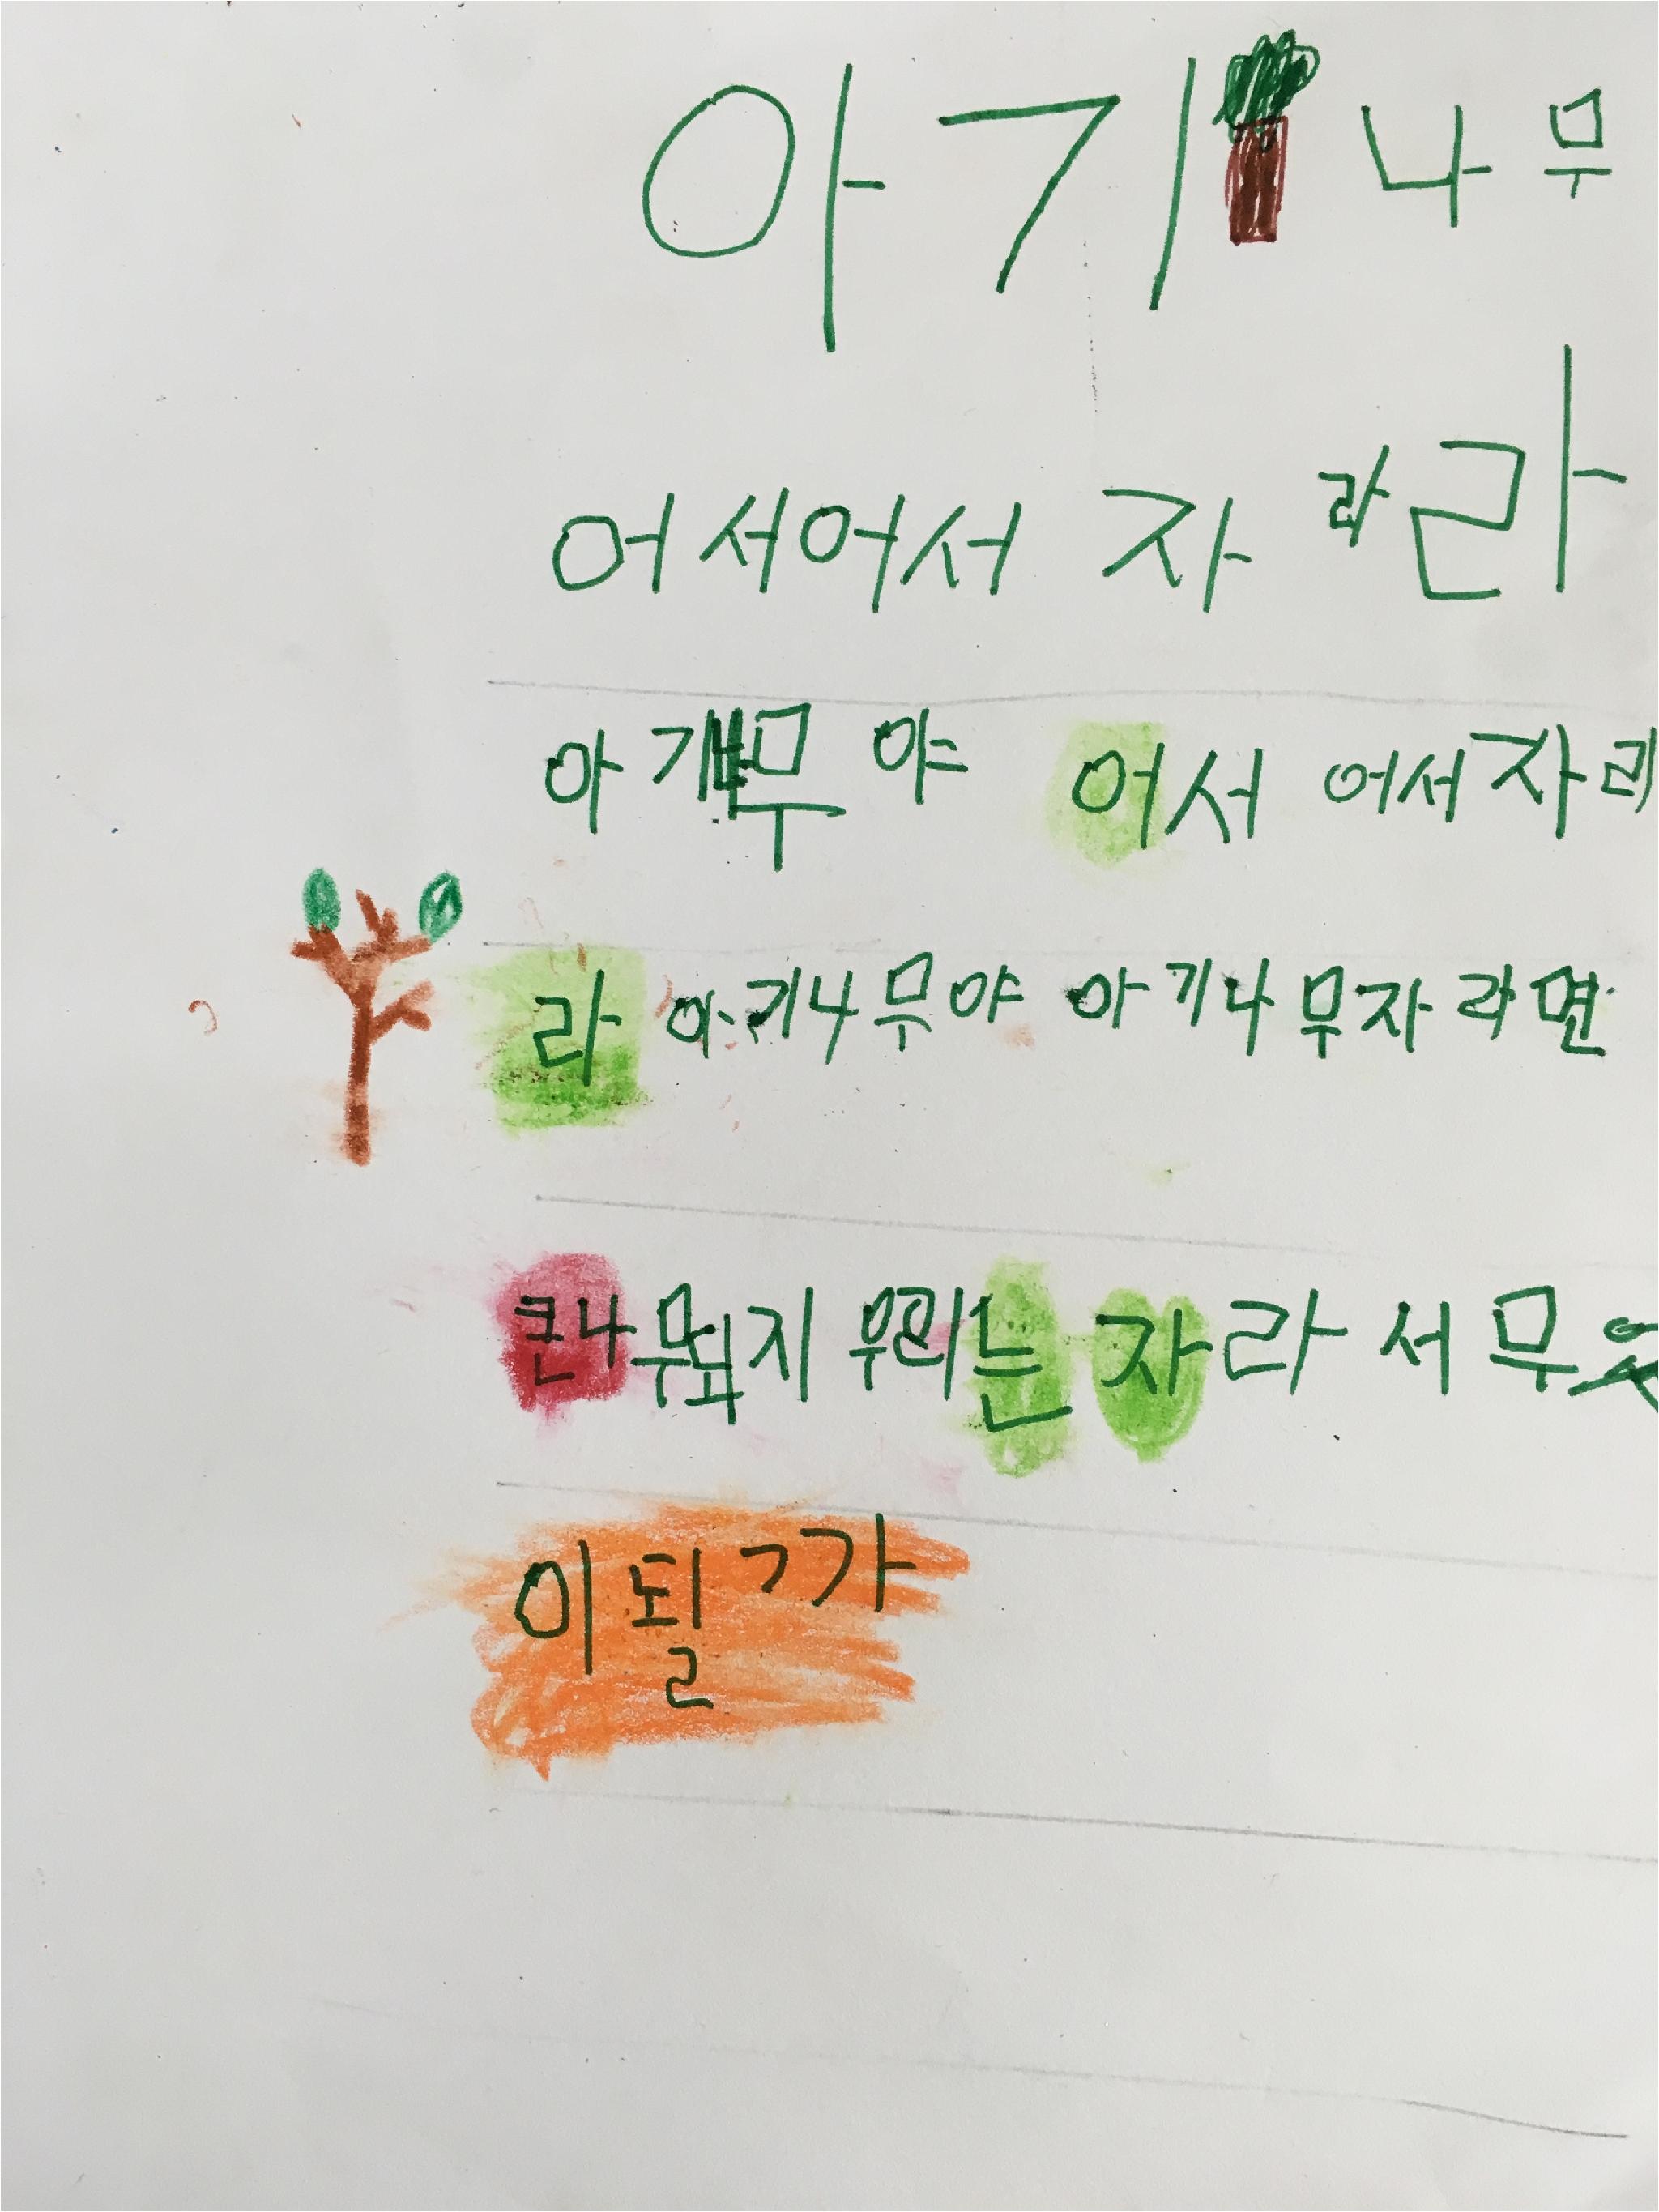 아기 나무
어서어서 자라라
아기나무야 어서 어서자라
라 아기나무야 아기나무자라면
큰나무되지 우리는 자라서무엇
이될까